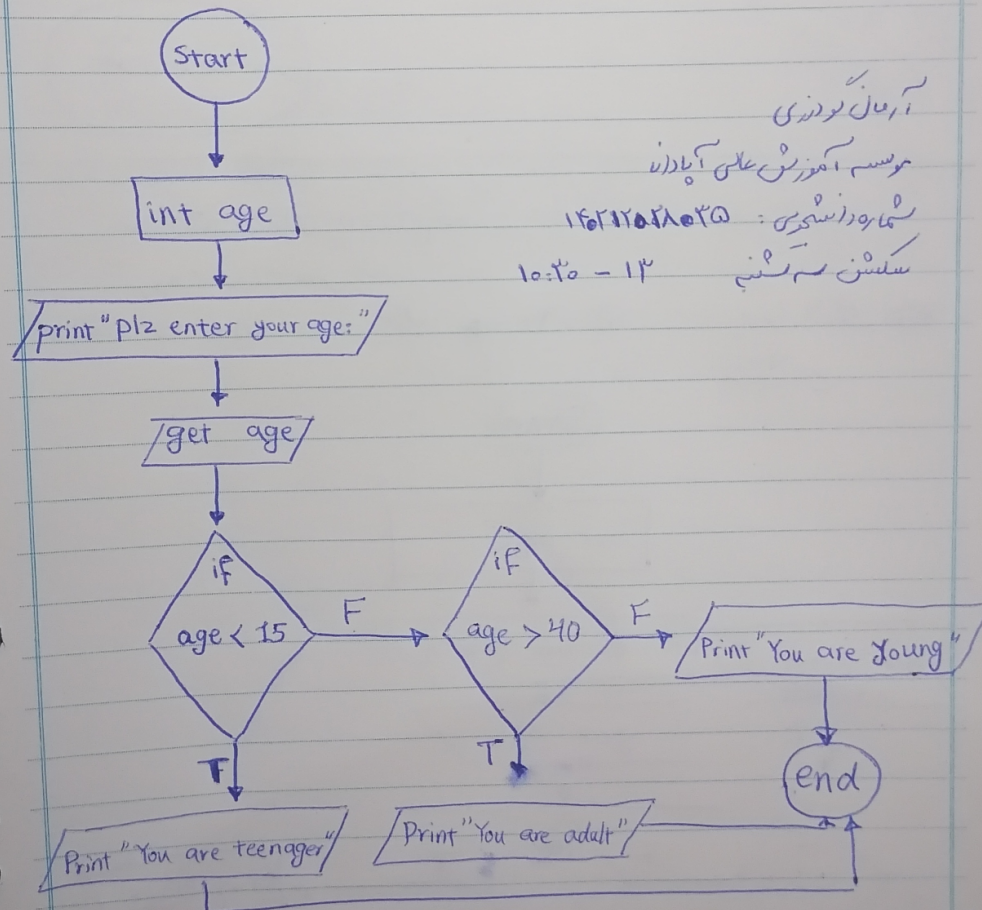 Start
آرمان گودرزی
موسسه آموزش عالی آپادانا
شماره دانشجویی: ۱۴۰۲۱۲۰۲۸۰۳۵
سکشن سه شنبه ۱۰:۳۰ - ۱۳
int age
print "plz enter your age:"
get age
if
age < 15
F
if
age > 40
F
Print "You are young"
T
T
end
Print "You are adult"
Print "You are teenager"